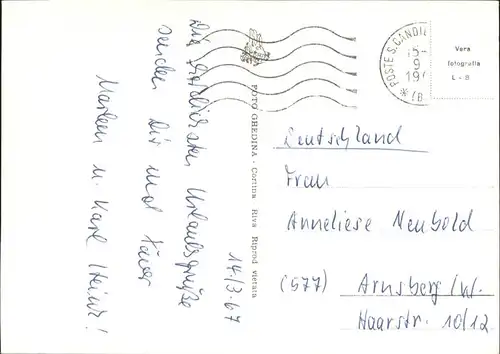 17/3.67
Die herzlichsten Urlaubsgrüße
senden Dir und
Marleen u. Karl Heinz!
FOTO GHEDINA - Cortina Riva Riprod vietata
POSTE S. CANDI
Vera
fotografia
L - B
Deutschland
Frau
Anneliese Neubold
(577) Arnsberg/W.
Haarstr. 10/12